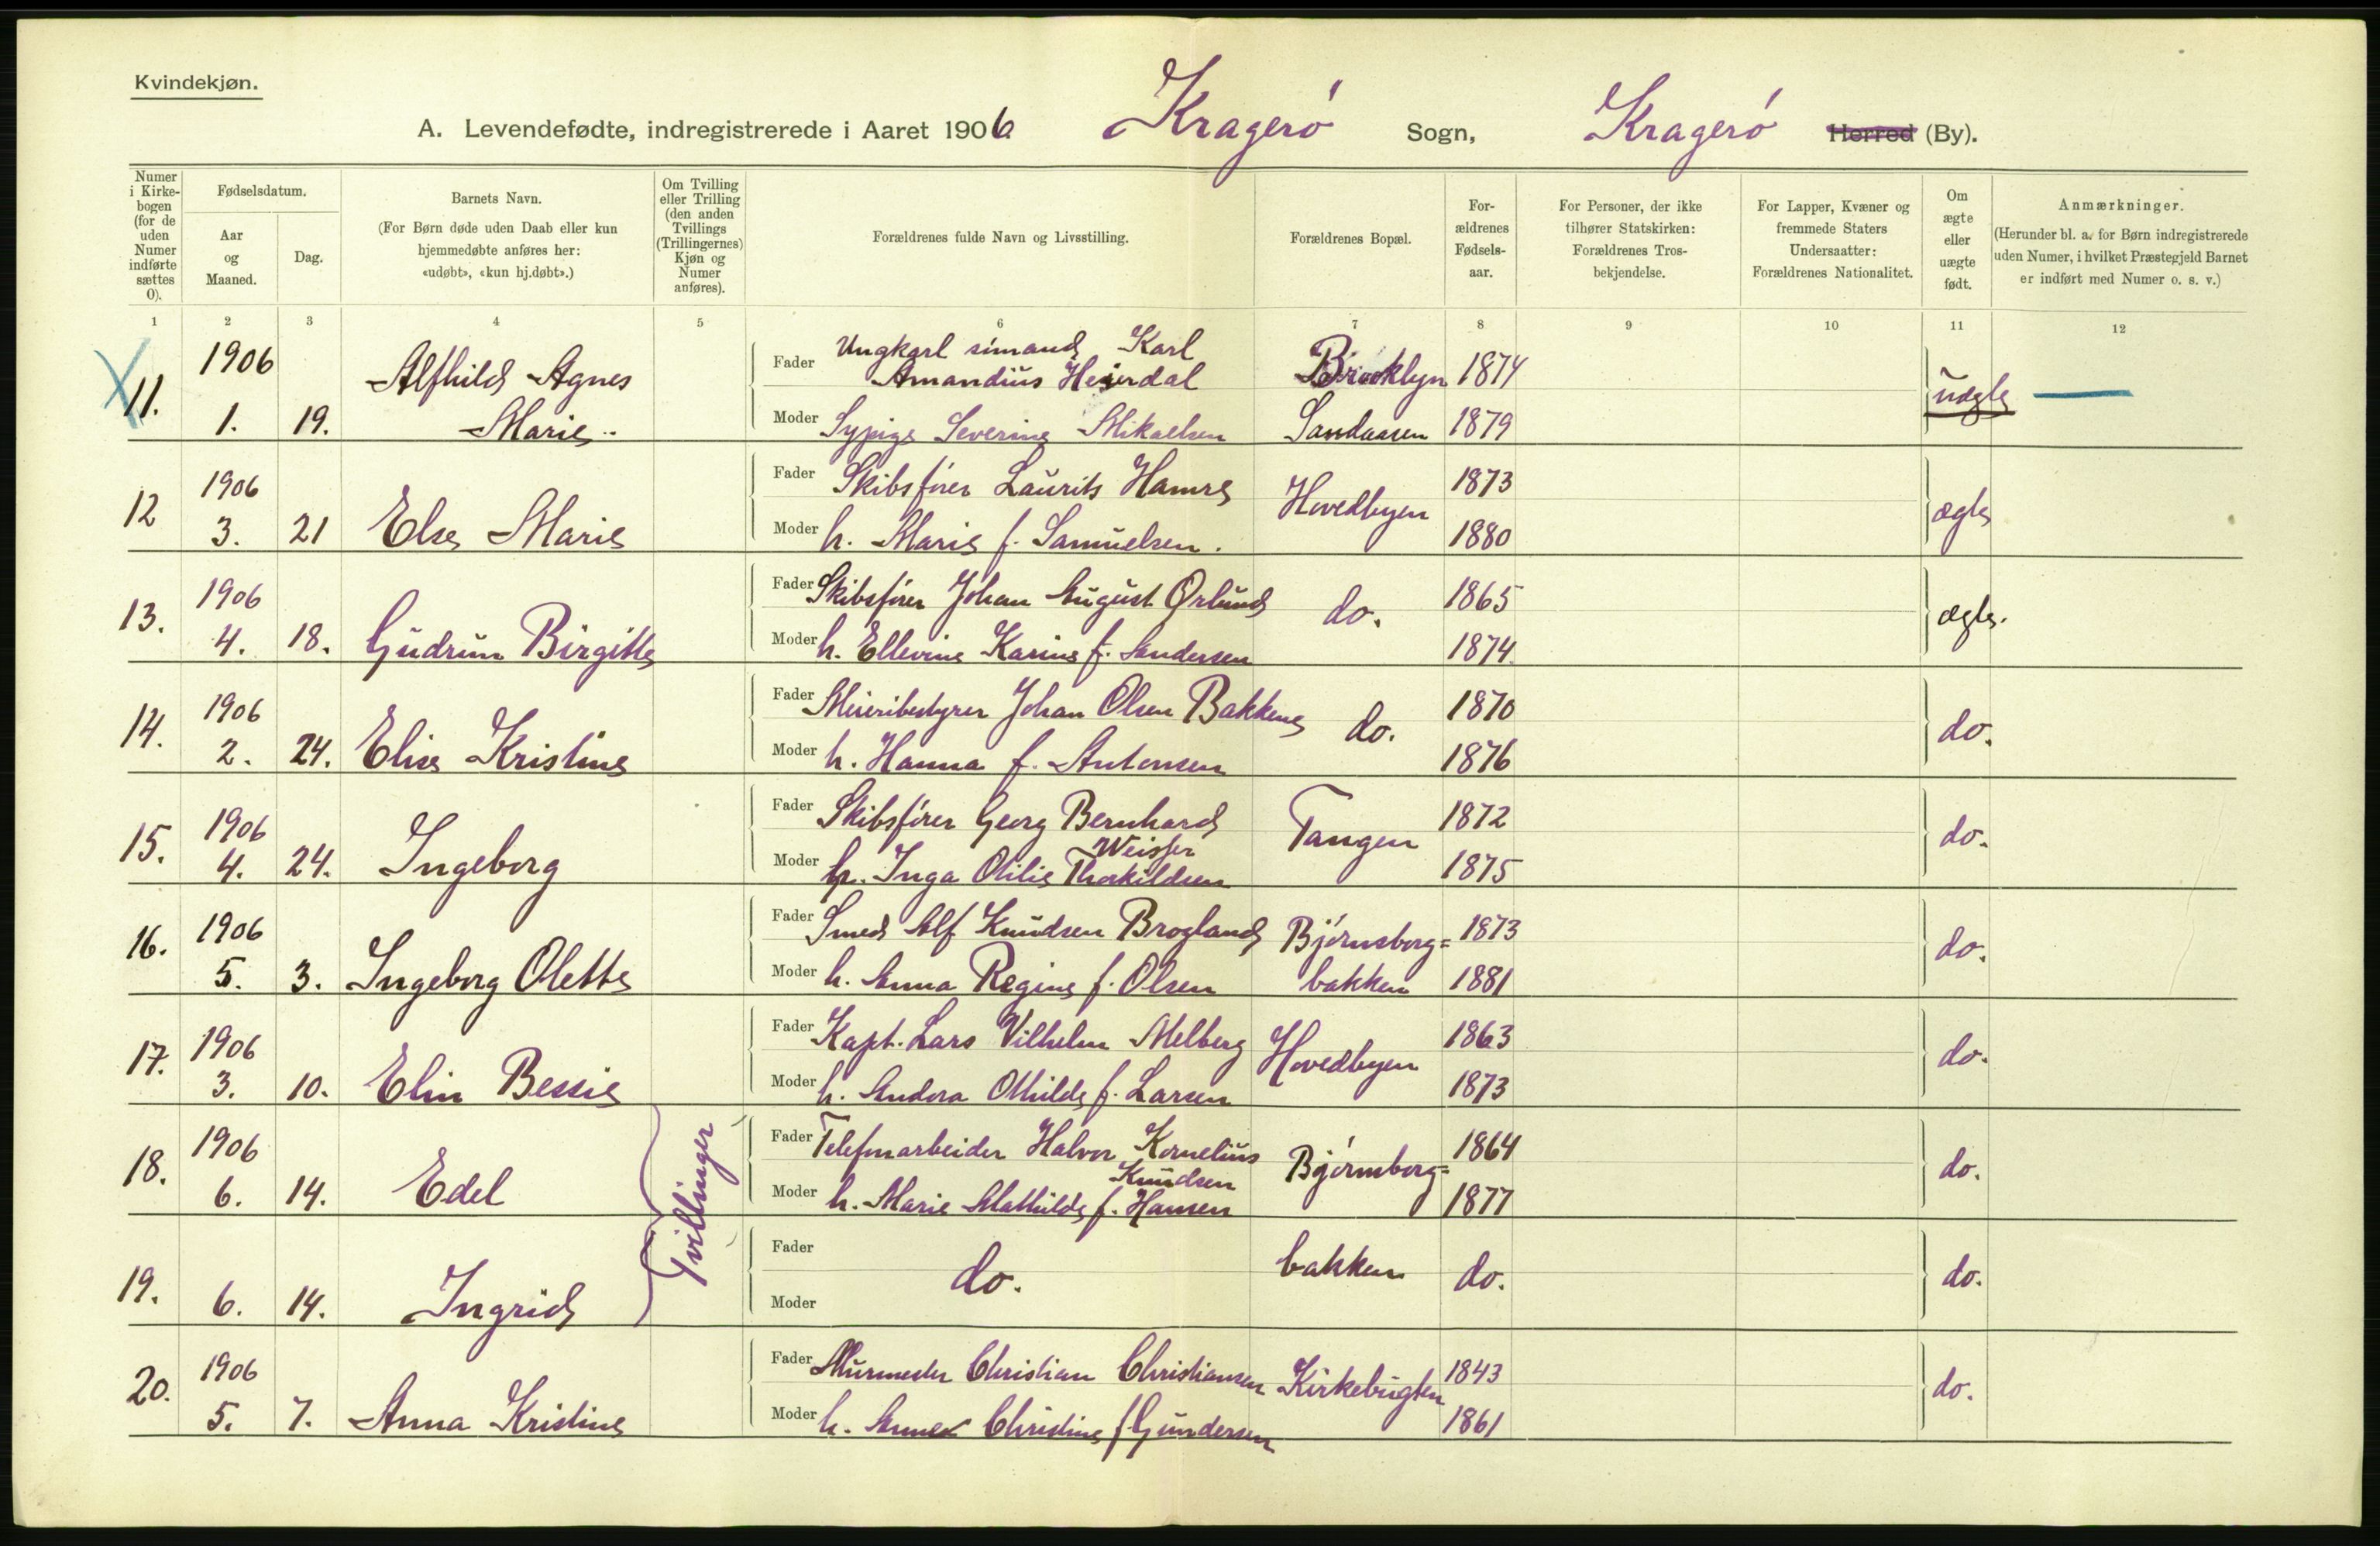 Kvindekjøn.
A. Levendefødte, indregistrerede i Aaret 1906 Kragerø Sogn, Kragerø Herred (By).
Numer i Kirke-bogen (for de uden Numer indførte sættes 0).
Fødselsdatum.
Aar og Maaned.
Dag.
Barnets Navn.
(For Børn døde uden Daab eller kun
hjemmedøbte anføres her:
«udøbt», «kun hj.døbt».)
Om Tvilling eller Trilling (den anden Tvillings (Trillingernes) Kjøn og Numer anføres).
Forældrenes fulde Navn og Livsstilling.
Forældrenes Bopæl.
For-ældrenes Fødsels-aar.
For Personer, der ikke
tilhører Statskirken:
Forældrenes Tros-
bekjendelse.
For Lapper, Kvæner og
fremmede Staters
Undersaatter:
Forældrenes Nationalitet.
Om ægte eller uægte født.
Anmærkninger.
(Herunder bl. a. for Børn indregistrerede
uden Numer, i hvilket Præstegjeld Barnet
er indført med Numer o. s. v.)
1 2 3 4 5 6 7 8 9 10 11 12
11. 1906 1. 19. Alfhild Agnes Marie
Fader Ungkarl sømand Karl
Amandius Heierdal Brooklyn 1874
Moder Sypige Severine Mikaelsen Sandaasen 1879 uægte
12 1906 3. 21 Else Marie
Fader Skibsfører Laurits Hamre Hovedbyen 1873
Moder h. Marie f. Samuelsen. 1880 ægte
13. 1906 4. 18. Gudrun Birgitte
Fader Skibsfører Johan August Ørlund do. 1865
Moder h. Ellevine Karine f. Andersen 1874. ægte.
14. 1906 2. 24. Elise Kristine
Fader Meieribestyrer Johan Olsen Bakkene do. 1870
Moder h. Hanna f. Antonsen 1876 do.
15. 1906 4. 24. Ingeborg
Fader Skibsfører Georg Bernhard
Weisser Tangen 1872
Moder h. Inga Otilie Thorkildsen 1875 do.
16. 1906 5. 3. Ingeborg Olette
Fader Smed Alf Knudsen Brogland Bjørnsborg= 1873
Moder h. Anna Regine f. Olsen bakken 1881 do.
17. 1906 3. 10. Elin Bessie
Fader Kapt. Lars Vilhelm Melberg Hovedbyen 1863
Moder h. Andora Othilde f. Larsen 1873 do.
18. 1906 6. 14. Edel Tvillinger
Fader Telefonarbeider Halvor Kornelius
Knudsen Bjørnsborg= 1864
Moder h. Marie Mathilde f. Hansen 1877 do.
19. 6. 14. Ingrid
Fader
do. bakken do. do.
Moder
20. 1906 5. 7. Anna Kristine
Fader Murmester Christian Christiansen Kirkebugten 1843
Moder h. Anne Christine f Gundersen 1861 do.